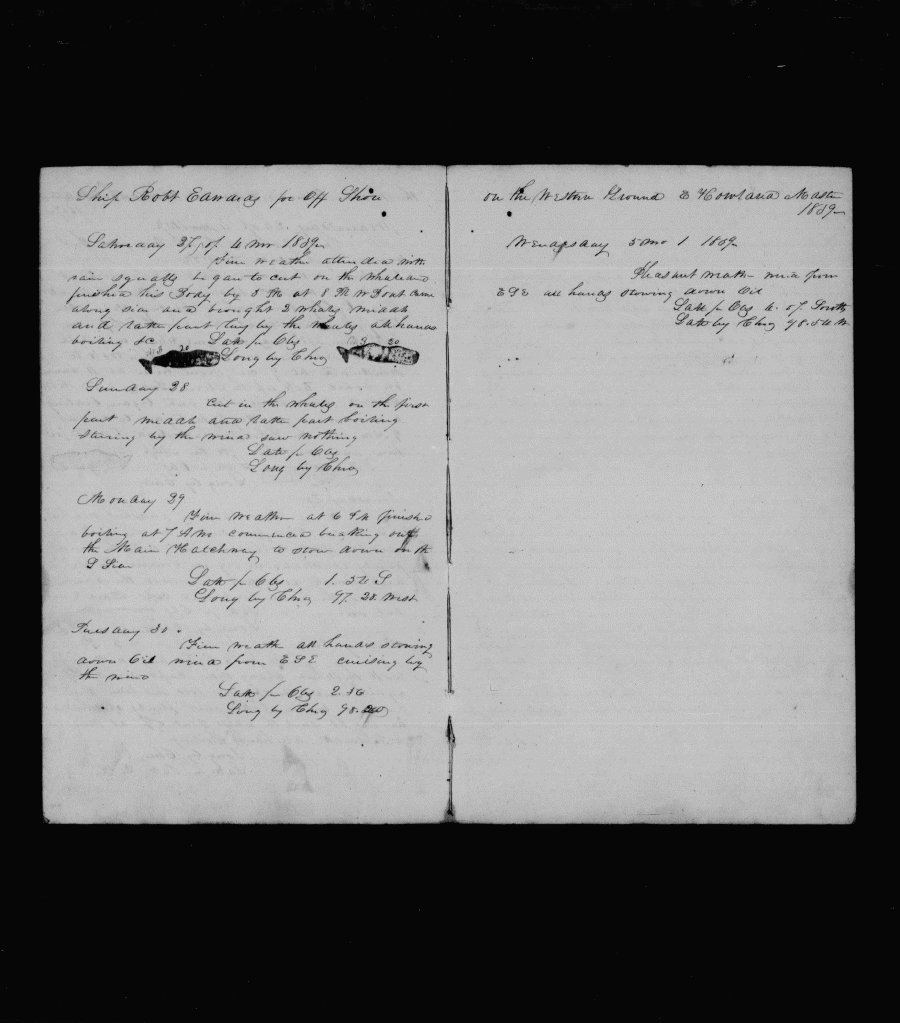 Ship Robt Edwards for Off Shore
Saturday 27 of 4 mo 1839
Fine weather attended with
rain squalls began to cut on the whale and
finished his Body by 5 PM at 8 PM W Boat came
along side and brought 2 whales middle
and latter part lay by the whales all hands
boiling &c Latt pr Obs
20 Long by Chro 20
Sunday 28
Cut in the whales on the first
part middle and latter part boiling
steering by the wind saw nothing
Latt pr Obs
Long by Chro
Monday 29
Fine weather at 6 PM finished
boiling at 7 AM commenced breaking out
the Main Hatchway to stow down on the
Latt pr Obs 1. 54 S
Long by Chro 97. 28. West
Tuesday 30
Fine weather all hands stowing
down Oil wind from ESE cruising by
the wind
Latt pr Obs 2. 56
Long by Chro 98.
on the Western Ground E Howland Master
1839
Wednesday 5 mo 1 1839
Pleasant weather wind from
ESE all hands stowing down Oil
Latt pr Obs 4. 07 South
Latt by Chro 98. 54 W